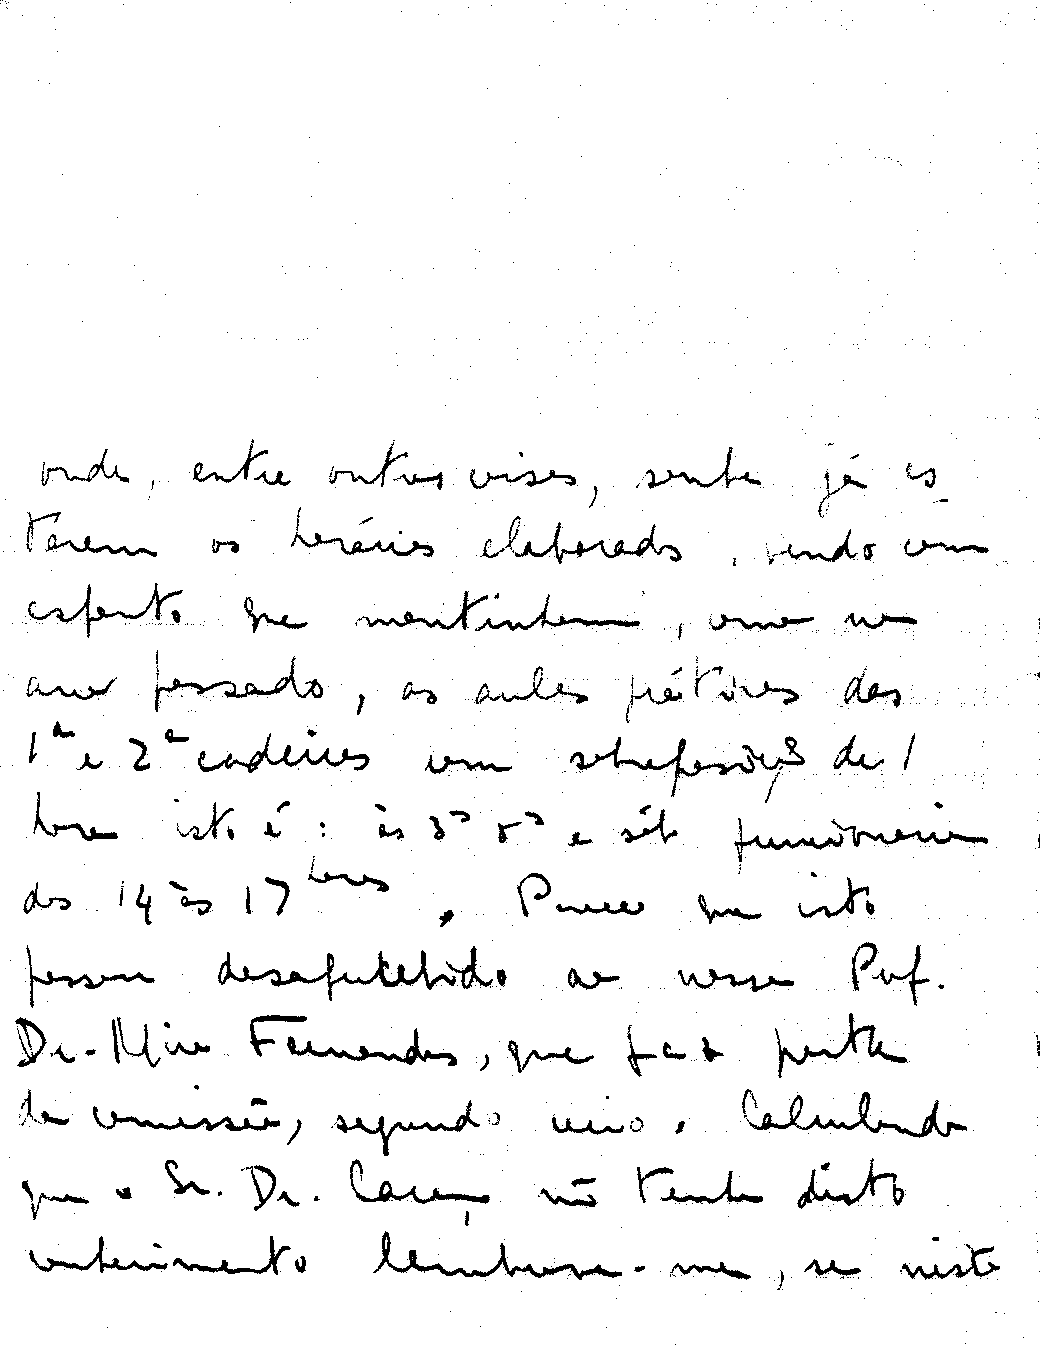 onde, entre outras coisas, soube já es
tarem os horários elaborados, vendo com
espanto que mantinham, como no
ano passado, as aulas práticas das
1ª e 2ª cadeiras com sobreposição de 1
hora isto é: às 3ªs 5ªs e sáb funcionariam
das 14 às 17 horas. Parece que isto
passou desapercebido ao nosso Prof.
Dr. Mira Fernandes, que faz parte
da comissão, segundo creio. Calculando
que o Sr. Dr. Caraça não tenha disto
conhecimento lembrava-me, se nisto